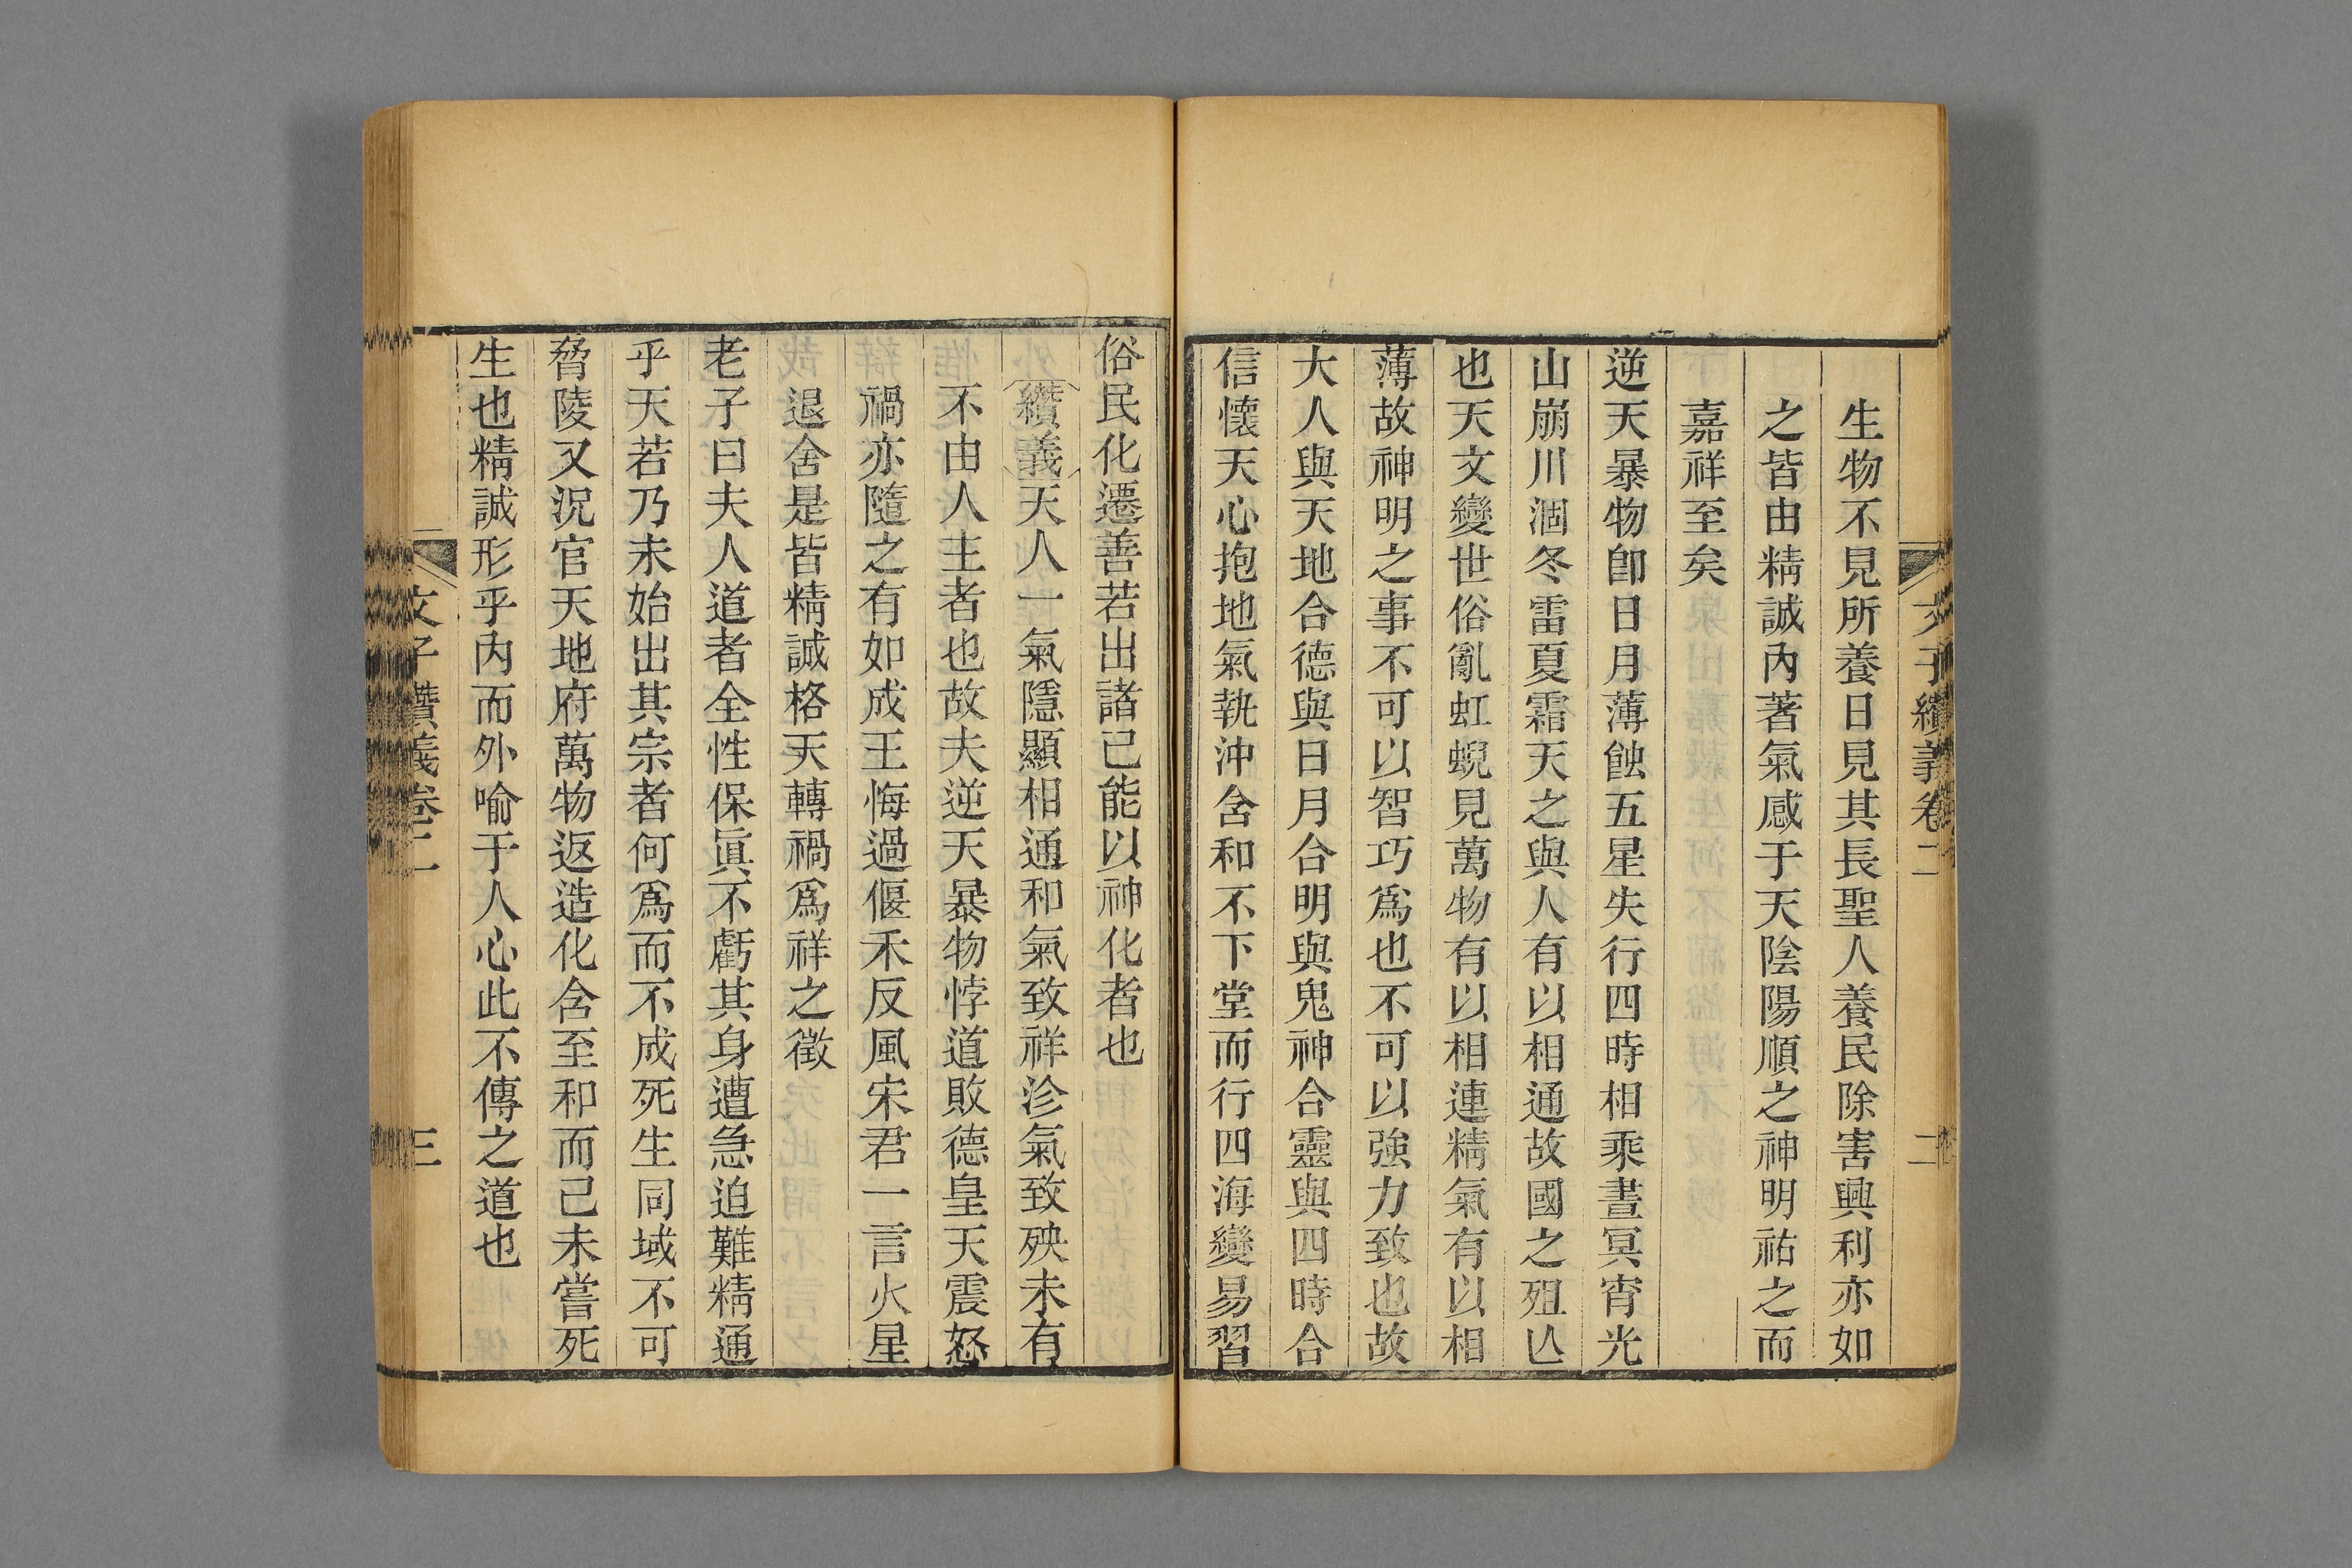 文子纘義卷二
二
生物不見所養日見其長聖人養民除害興利亦如
之皆由精誠內著氣感于天陰陽順之神明祐之而
嘉祥至矣
逆天暴物卽日月薄蝕五星失行四時相乘晝冥宵光
山崩川涸冬雷夏霜天之與人有以相通故國之殂亾
也天文變世俗亂虹蜺見萬物有以相連精氣有以相
薄故神明之事不可以智巧爲也不可以強力致也故
大人與天地合德與日月合明與鬼神合靈與四時合
信懷天心抱地氣執沖含和不下堂而行四海變易習
俗民化遷善若出諸已能以神化者也
纘義天人一氣隱顯相通和氣致祥沴氣致殃未有
不由人主者也故夫逆天暴物悖道敗德皇天震怒
禍亦隨之有如成王悔過偃禾反風宋君一言火星
退舍是皆精誠格天轉禍爲祥之徵
老子曰夫人道者全性保眞不虧其身遭急迫難精通
乎天若乃未始出其宗者何爲而不成死生同域不可
脅陵又況官天地府萬物返造化含至和而己未嘗死
生也精誠形乎內而外喻于人心此不傳之道也
文子纘義卷二
三